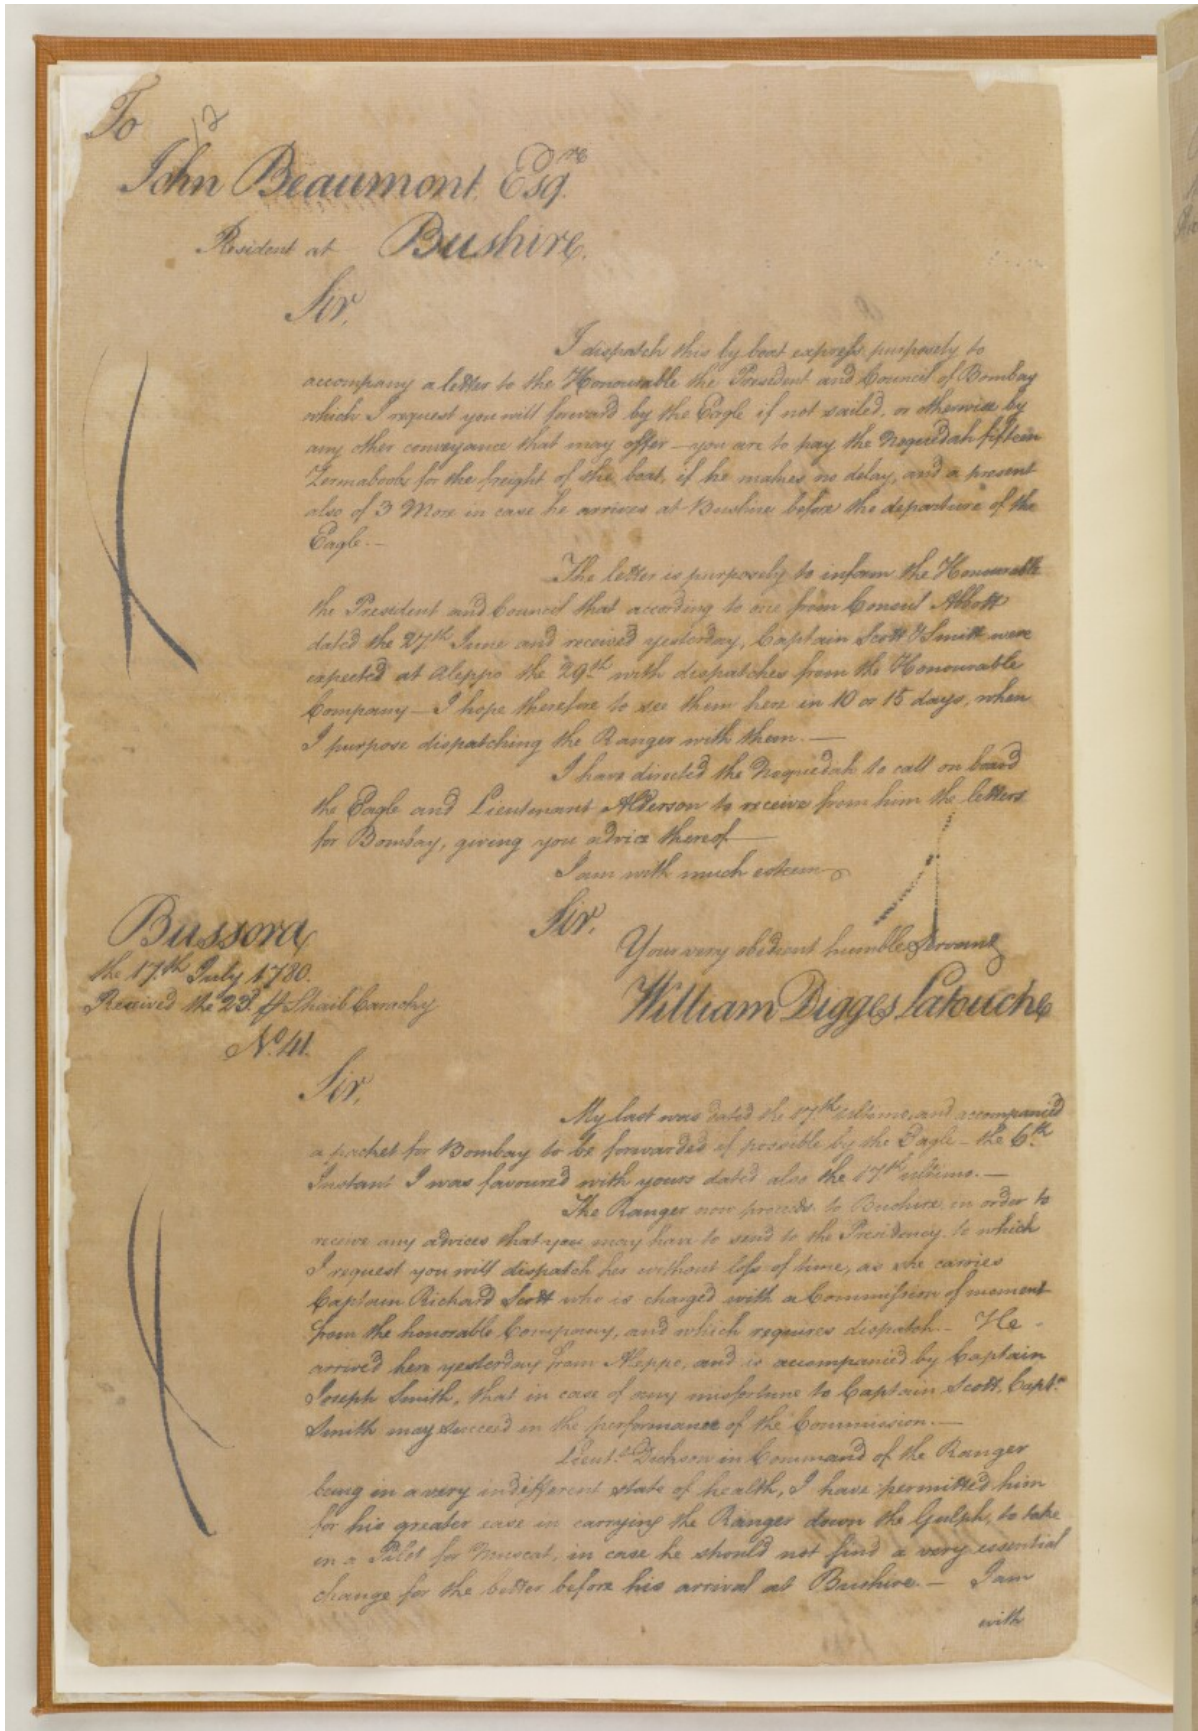 To
12
John Beaumont Esqre
Resident at Bushire.
Sir,
I dispatch this by boat express purposely to
accompany a letter to the Honourable the President and Council of Bombay
which I request you will forward by the Eagle if not sailed, or otherwise by
any other conveyance that may offer — you are to pay the Noquedah fifteen
Zermaboobs for the freight of the boat, if he makes no delay, and a present
also of 3 More in case he arrives at Bushire before the departure of the
Eagle. —
The letter is purposely to inform the Honourable
the President and Council that according to one from Consul Abbott
dated the 27th June and received yesterday, Captain Scott & Smith were
expected at Aleppo the 29th with dispatches from the Honourable
Company — I hope therefore to see them here in 10 or 15 days, when
I purpose dispatching the Ranger with them. —
I have directed the Noquedah to call on board
the Eagle and Lieutenant Alderson to receive from him the letters
for Bombay, giving you advice thereof —
I am with much esteem
Sir.
Your very obedient humble Servant
William Digges Latouche
Bussora
the 17th July 1780.
Received the 23d. Shaib
No. 41.
Sir,
My last was dated the 17th ultimo, and accompanied
a packet for Bombay to be forwarded if possible by the Eagle — the 6th
Instant I was favoured with yours dated also the 17th ultimo. —
The Ranger now proceeds to Bushire in order to
receive any advices that you may have to send to the Presidency, to which
I request you will dispatch her without loss of time, as she carries
Captain Richard Scott who is charged with a Commission of moment
from the honorable Company, and which requires dispatch. — He
arrived here yesterday from Aleppo, and is accompanied by Captain
Joseph Smith, that in case of any misfortune to Captain Scott, Captn
Smith may succeed in the performance of the Commission. —
Lieut. Dickson in Command of the Ranger
being in a very indifferent state of health, I have permitted him
for his greater ease in carrying the Ranger down the Gulph, to take
in a Pilot for Muscat, in case he should not find a very essential
change for the better before his arrival at Bushire. — I am
with